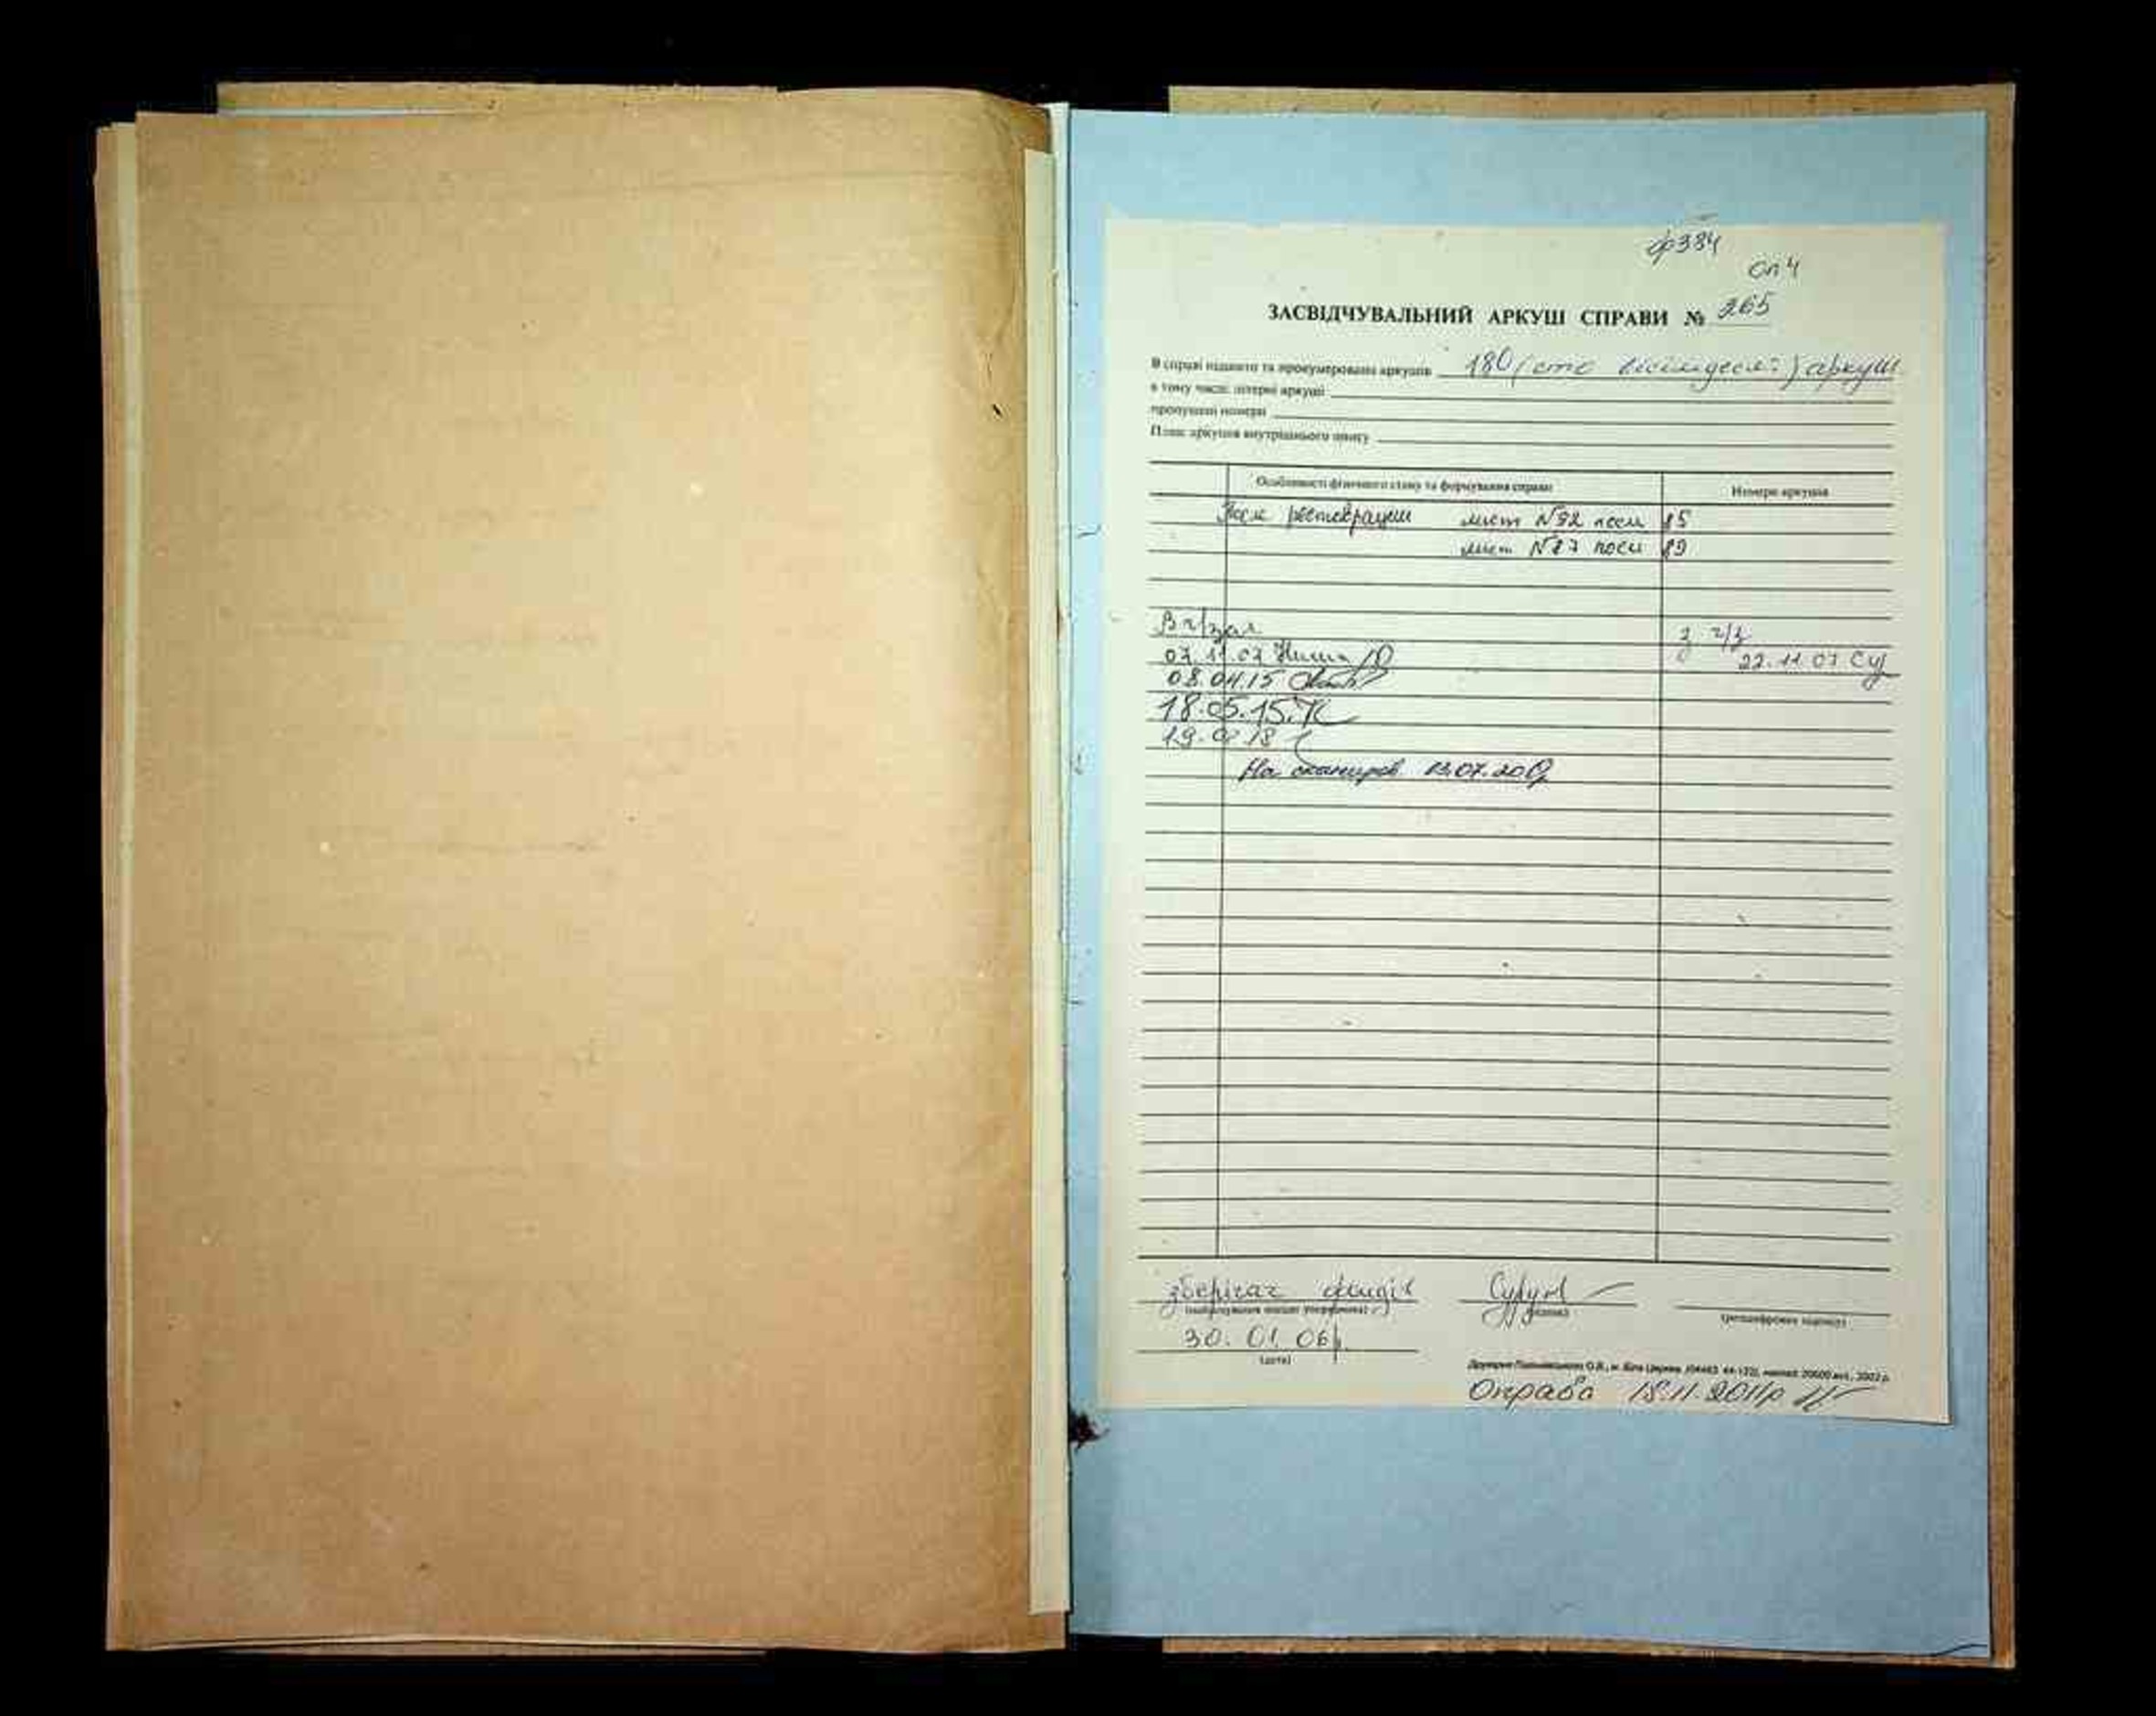 ф384
оп 4
ЗАСВІДЧУВАЛЬНИЙ АРКУШ СПРАВИ № 265
В справі підшито та пронумеровано аркушів 180 (сто вісімдесят) аркуш
в тому числі: літерні аркуші
пропущені номери
Плюс аркушів внутрішнього опису
Особливості фізичного стану та формування справи
Номери аркушів
После реставрации лист №92 после 85
лист №87 после 89
В ч/зал
з ч/з
07.11.07
22.11.07 Су
08.04.15
18.05.15.
На сканиров 13.07.20
зберігач фондів
(підпис)
(розшифровка підпису)
30. 01. 06р.
(дата)
Оправа 18.11.2011р